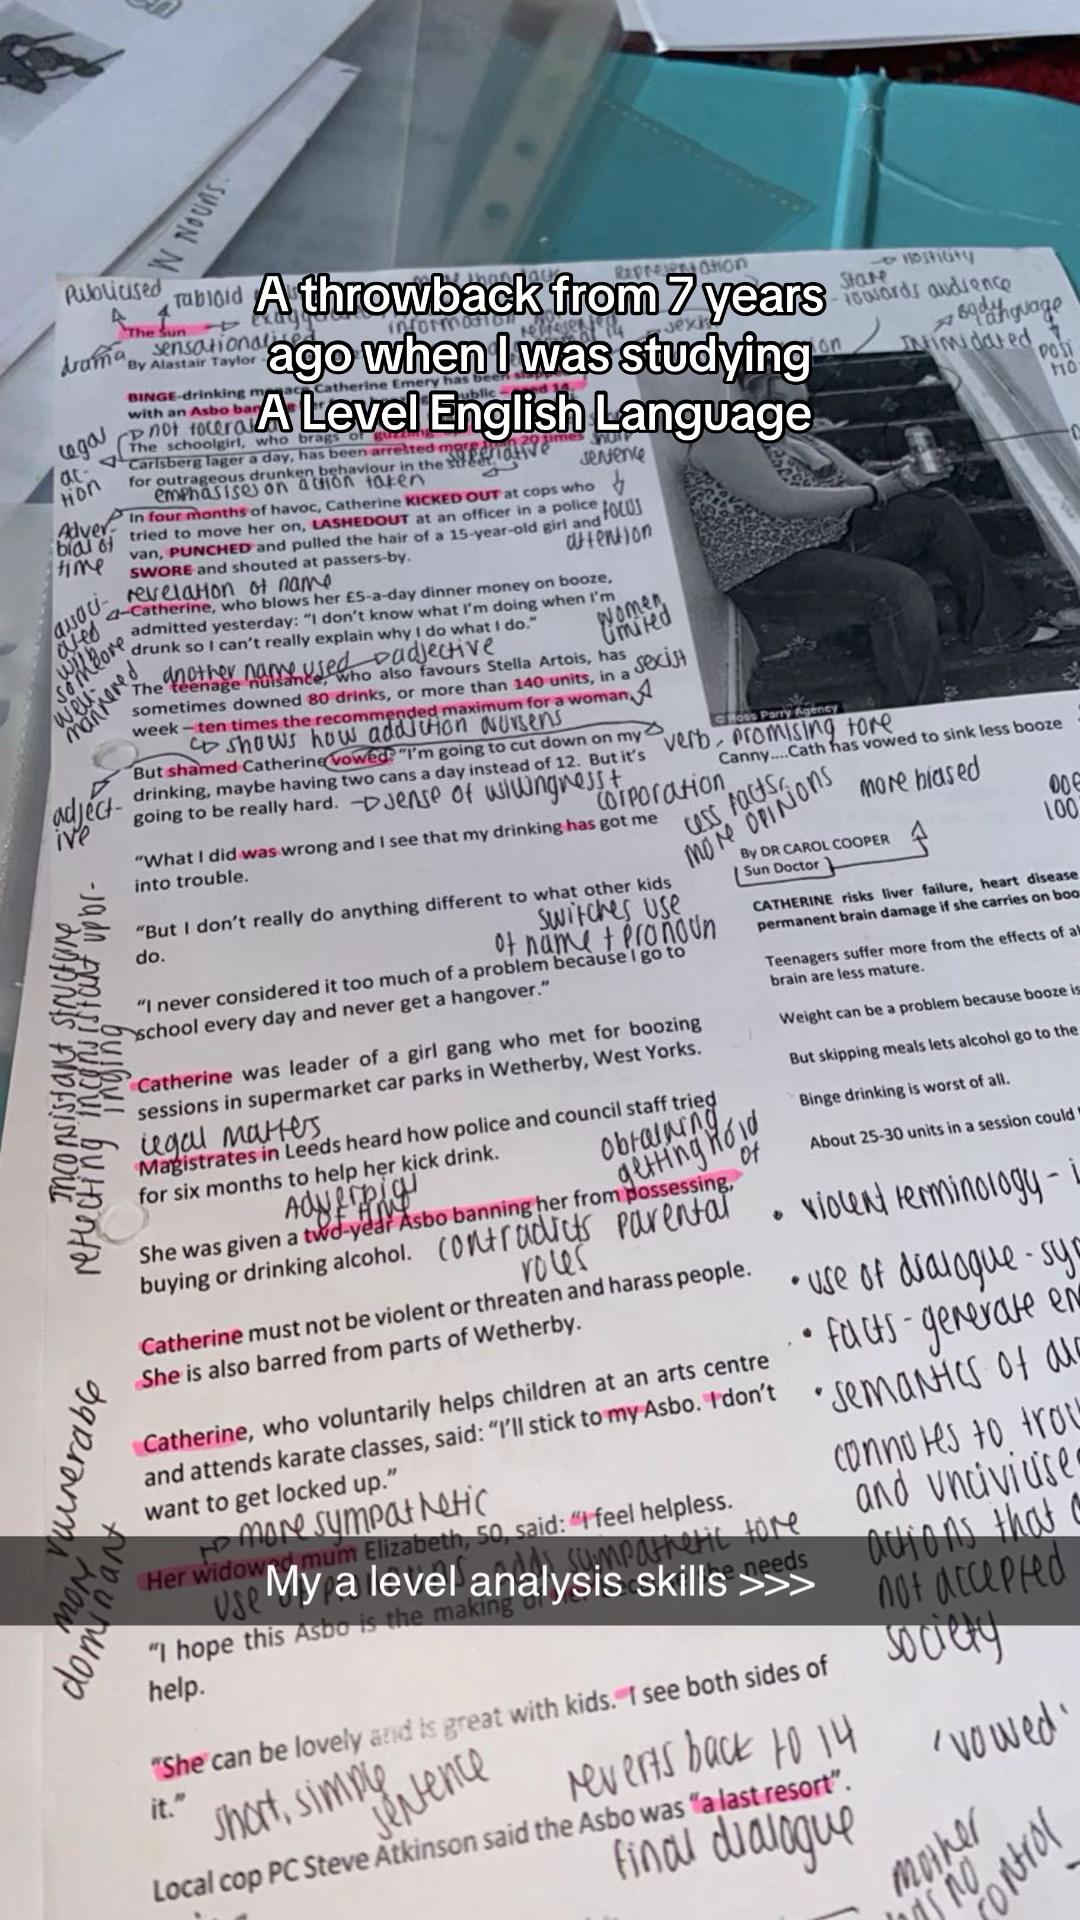 N NOUNS.
A throwback from 7 years
ago when I was studying
A Level English Language
Publicised
Tabloid
Representation
Hostility
Stare
towards audience
body language
Intimidated
information
The Sun
sensationalised
drama
By Alastair Taylor
BINGE-drinking menace Catherine Emery has been
with an Asbo
not tolerated
The schoolgirl, who brags of guzzling
Carlsberg lager a day, has been arrested more than 20 times
for outrageous drunken behaviour in the street.
legal
ac-
tion
emphasises on action taken
superlative
short
sentence
focus
attention
In four months of havoc, Catherine KICKED OUT at cops who
tried to move her on, LASHEDOUT at an officer in a police
van, PUNCHED and pulled the hair of a 15-year-old girl and
SWORE and shouted at passers-by.
Adver-
bial of
time
revelation of name
Catherine, who blows her £5-a-day dinner money on booze,
admitted yesterday: "I don't know what I'm doing when I'm
drunk so I can't really explain why I do what I do."
associ-
ated
with
someone
well-
mannered
women
limited
another name used
adjective
The teenage nuisance, who also favours Stella Artois, has
sometimes downed 80 drinks, or more than 140 units, in a
week – ten times the recommended maximum for a woman.
sexist
shows how addiction worsens
© Ross Parry Agency
verb, promising tone
But shamed Catherine vowed: "I'm going to cut down on my
drinking, maybe having two cans a day instead of 12. But it's
going to be really hard.
adject-
ive
sense of willingness +
corporation
"What I did was wrong and I see that my drinking has got me
into trouble.
"But I don't really do anything different to what other kids
do.
switches use
of name + pronoun
"I never considered it too much of a problem because I go to
school every day and never get a hangover."
inconsistant structure
reflecting inconsistant upbr-
inging
Catherine was leader of a girl gang who met for boozing
sessions in supermarket car parks in Wetherby, West Yorks.
legal matters
Magistrates in Leeds heard how police and council staff tried
for six months to help her kick drink.
obtaining
getting hold
of
Adverbial
of time
She was given a two-year Asbo banning her from possessing,
buying or drinking alcohol.
contradicts parental
roles
Catherine must not be violent or threaten and harass people.
She is also barred from parts of Wetherby.
Catherine, who voluntarily helps children at an arts centre
and attends karate classes, said: "I'll stick to my Asbo. I don't
want to get locked up."
more sympathetic
more vulnerable
dominant
Her widowed mum Elizabeth, 50, said: "I feel helpless.
adds sympathetic tone
My a level analysis skills >>>
"I hope this Asbo is the making of her because she needs
help.
"She can be lovely and is great with kids. I see both sides of
it."
short, simple
sentence
reverts back to 14
Local cop PC Steve Atkinson said the Asbo was "a last resort".
final dialogue
Canny....Cath has vowed to sink less booze
less facts,
more opinions
more biased
By DR CAROL COOPER
Sun Doctor
CATHERINE risks liver failure, heart disease
permanent brain damage if she carries on
Teenagers suffer more from the effects of
brain are less mature.
Weight can be a problem because booze is
But skipping meals lets alcohol go to the
Binge drinking is worst of all.
About 25-30 units in a session could
• violent terminology -
• use of dialogue -
• facts - generate
• semantics of
connotes to
and
actions that
not accepted
society
'vowed'
mother
has no
control